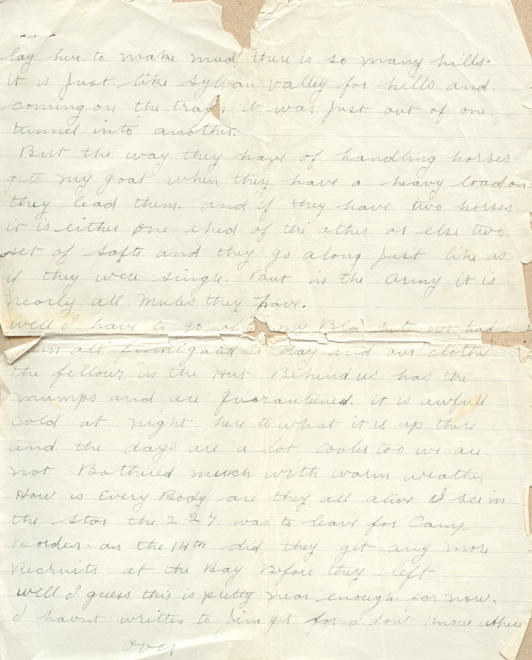 lay here to make mud there is so many hills.
it is just like Sylvan valley for hills and
coming on the train it was just out of one
tunnel into another.
But the way they have of handling horses
gets my goat when they have a heavy load on
they lead them. and if they have two horses
it is either one ehed of the other or else two
set of safts and they go along just like as
if they were single. But in the army it is
nearly all mules they have.
well I have to go my we had
them all fumigated to day and our clothes
the fellows in the Hut Behind us has the
mumps and are quarantened. it is awfull
cold at night here to what it is up there
and the days are a lot cooler too we are
not Bothered much with warm weather
How is Every Body are they all alive I see in
the star the 227 was to leave for Camp
Borden. on the 14th did they get any more
Recruits at the Bay Before they left
well I guess this is pretty near enough for now.
I havnt written to Jim yet for I don't know where
over